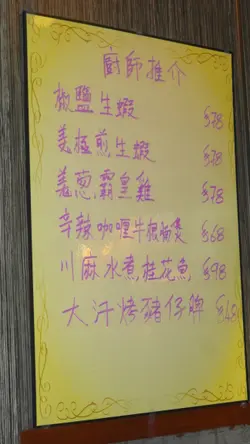 廚師推介
椒鹽生蝦 $78
美極煎生蝦 $78
羌葱霸皇雞 $78
辛辣咖喱牛根腩煲 $68
川麻水煮桂花魚 $98
大汗烤豬仔髀 $68